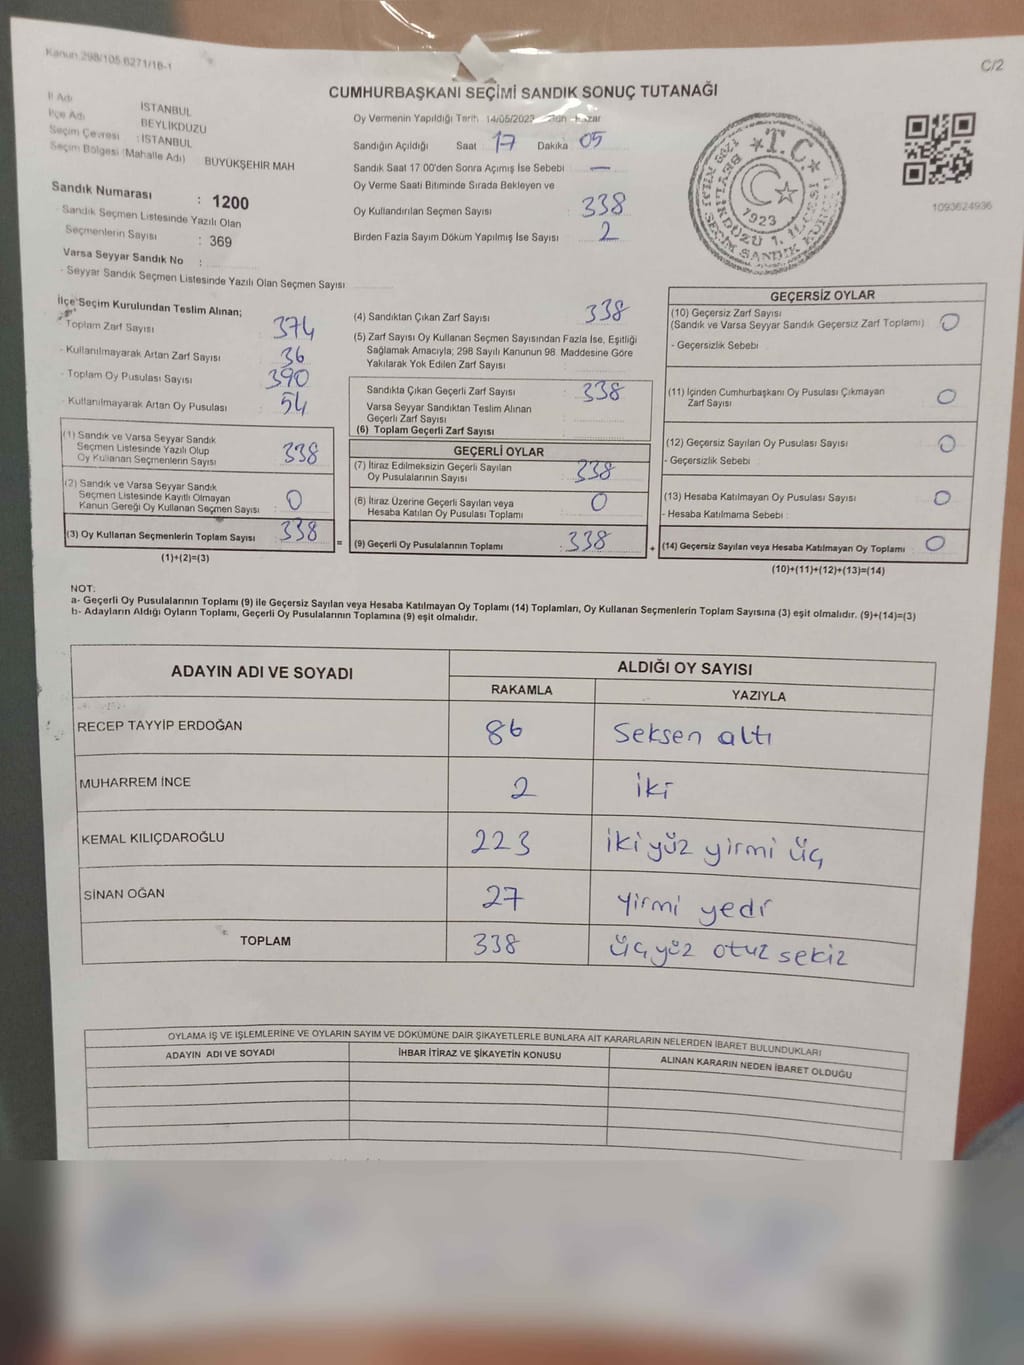 Kanun:298/105.6271/18-1
C/2
CUMHURBAŞKANI SEÇİMİ SANDIK SONUÇ TUTANAĞI
İl Adı İSTANBUL
İlçe Adı BEYLİKDÜZÜ
Seçim Çevresi : İSTANBUL
Seçim Bölgesi (Mahalle Adı) BÜYÜKŞEHİR MAH
Sandık Numarası : 1200
- Sandık Seçmen Listesinde Yazılı Olan
Seçmenlerin Sayısı : 369
Varsa Seyyar Sandık No :
- Seyyar Sandık Seçmen Listesinde Yazılı Olan Seçmen Sayısı
Oy Vermenin Yapıldığı Tarih 14/05/2023 Pazar
Sandığın Açıldığı Saat 17 Dakika 05
Sandık Saat 17.00'den Sonra Açımış İse Sebebi : —
Oy Verme Saati Bitiminde Sırada Bekleyen ve
Oy Kullandırılan Seçmen Sayısı : 338
Birden Fazla Sayım Döküm Yapılmış İse Sayısı : 2
T.C.
1923
1093624936
İlçe Seçim Kurulundan Teslim Alınan;
- Toplam Zarf Sayısı 374
- Kullanılmayarak Artan Zarf Sayısı 36
- Toplam Oy Pusulası Sayısı 390
- Kullanılmayarak Artan Oy Pusulası 54
(1) Sandık ve Varsa Seyyar Sandık
Seçmen Listesinde Yazılı Olup
Oy Kullanan Seçmenlerin Sayısı 338
(2) Sandık ve Varsa Seyyar Sandık
Seçmen Listesinde Kayıtlı Olmayan
Kanun Gereği Oy Kullanan Seçmen Sayısı : 0
(3) Oy Kullanan Seçmenlerin Toplam Sayısı 338
(1)+(2)=(3)
=
(4) Sandıktan Çıkan Zarf Sayısı 338
(5) Zarf Sayısı Oy Kullanan Seçmen Sayısından Fazla İse, Eşitliği
Sağlamak Amacıyla; 298 Sayılı Kanunun 98. Maddesine Göre
Yakılarak Yok Edilen Zarf Sayısı :
Sandıkta Çıkan Geçerli Zarf Sayısı : 338
Varsa Seyyar Sandıktan Teslim Alınan
Geçerli Zarf Sayısı :
(6) Toplam Geçerli Zarf Sayısı
GEÇERLİ OYLAR
(7) İtiraz Edilmeksizin Geçerli Sayılan
Oy Pusulalarının Sayısı : 338
(8) İtiraz Üzerine Geçerli Sayılan veya
Hesaba Katılan Oy Pusulası Toplamı : 0
(9) Geçerli Oy Pusulalarının Toplamı : 338
+
GEÇERSİZ OYLAR
(10) Geçersiz Zarf Sayısı
(Sandık ve Varsa Seyyar Sandık Geçersiz Zarf Toplamı) 0
- Geçersizlik Sebebi
(11) İçinden Cumhurbaşkanı Oy Pusulası Çıkmayan
Zarf Sayısı 0
(12) Geçersiz Sayılan Oy Pusulası Sayısı 0
- Geçersizlik Sebebi
(13) Hesaba Katılmayan Oy Pusulası Sayısı 0
- Hesaba Katılmama Sebebi :
(14) Geçersiz Sayılan veya Hesaba Katılmayan Oy Toplamı 0
(10)+(11)+(12)+(13)=(14)
NOT:
a- Geçerli Oy Pusulalarının Toplamı (9) ile Geçersiz Sayılan veya Hesaba Katılmayan Oy Toplamı (14) Toplamları, Oy Kullanan Seçmenlerin Toplam Sayısına (3) eşit olmalıdır. (9)+(14)=(3)
b- Adayların Aldığı Oyların Toplamı, Geçerli Oy Pusulalarının Toplamına (9) eşit olmalıdır.
ADAYIN ADI VE SOYADI ALDIĞI OY SAYISI
RAKAMLA YAZIYLA
RECEP TAYYİP ERDOĞAN 86 Seksen altı
MUHARREM İNCE 2 iki
KEMAL KILIÇDAROĞLU 223 iki yüz yirmi üç
SİNAN OĞAN 27 yirmi yedi
TOPLAM 338 üç yüz otuz sekiz
OYLAMA İŞ VE İŞLEMLERİNE VE OYLARIN SAYIM VE DÖKÜMÜNE DAİR ŞİKAYETLERLE BUNLARA AİT KARARLARIN NELERDEN İBARET BULUNDUKLARI
ADAYIN ADI VE SOYADI İHBAR İTİRAZ VE ŞİKAYETİN KONUSU ALINAN KARARIN NEDEN İBARET OLDUĞU